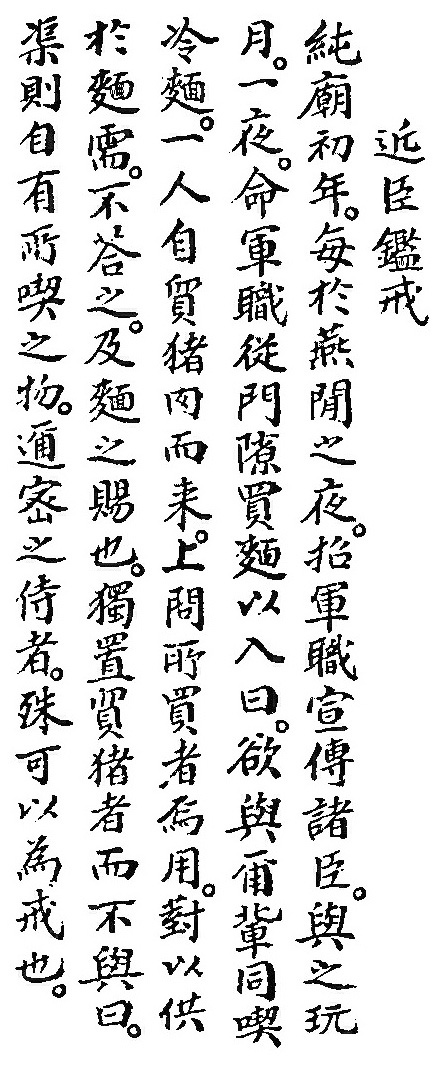 近臣鑑戒
純廟初年。每於燕閒之夜。招軍職宣傳諸臣。與之玩
月。一夜。命軍職從門隙買麵以入曰。欲與爾輩同喫
冷麵。一人自貿猪肉而来。上問所買者焉用。對以供
於麵需。不答之。及麵之賜也。獨置貿猪者而不與曰。
渠則自有所喫之物。邇密之侍者。殊可以為戒也。